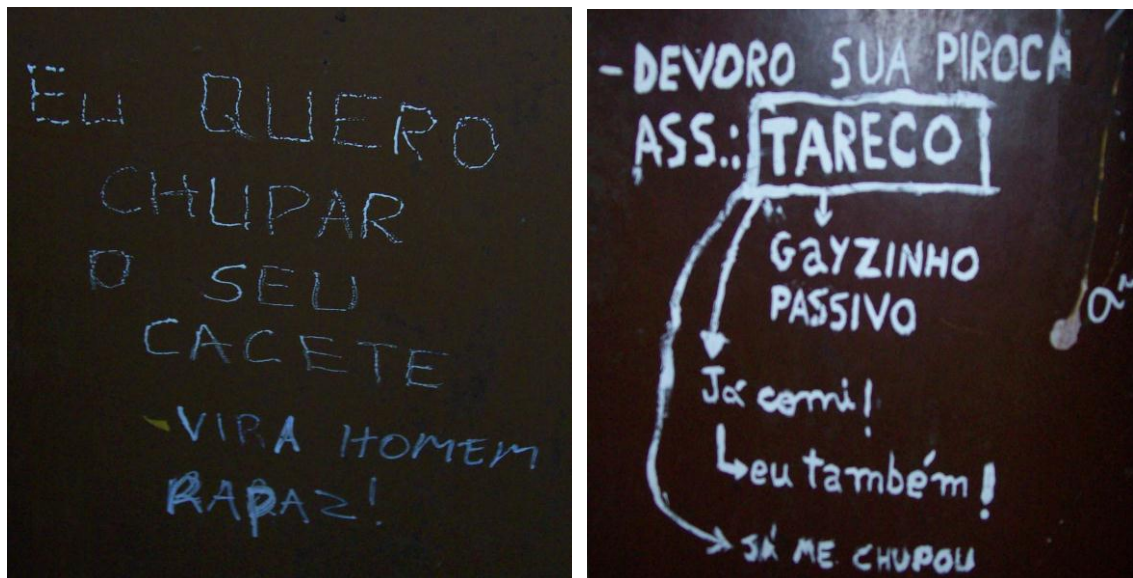 EU QUERO
CHUPAR
O SEU
CACETE
-VIRA HOMEM
RAPAZ!
- DEVORO SUA PIROCA
ASS.: TARECO
GAYZINHO
PASSIVO
Já comi!
eu também!
JÁ ME CHUPOU